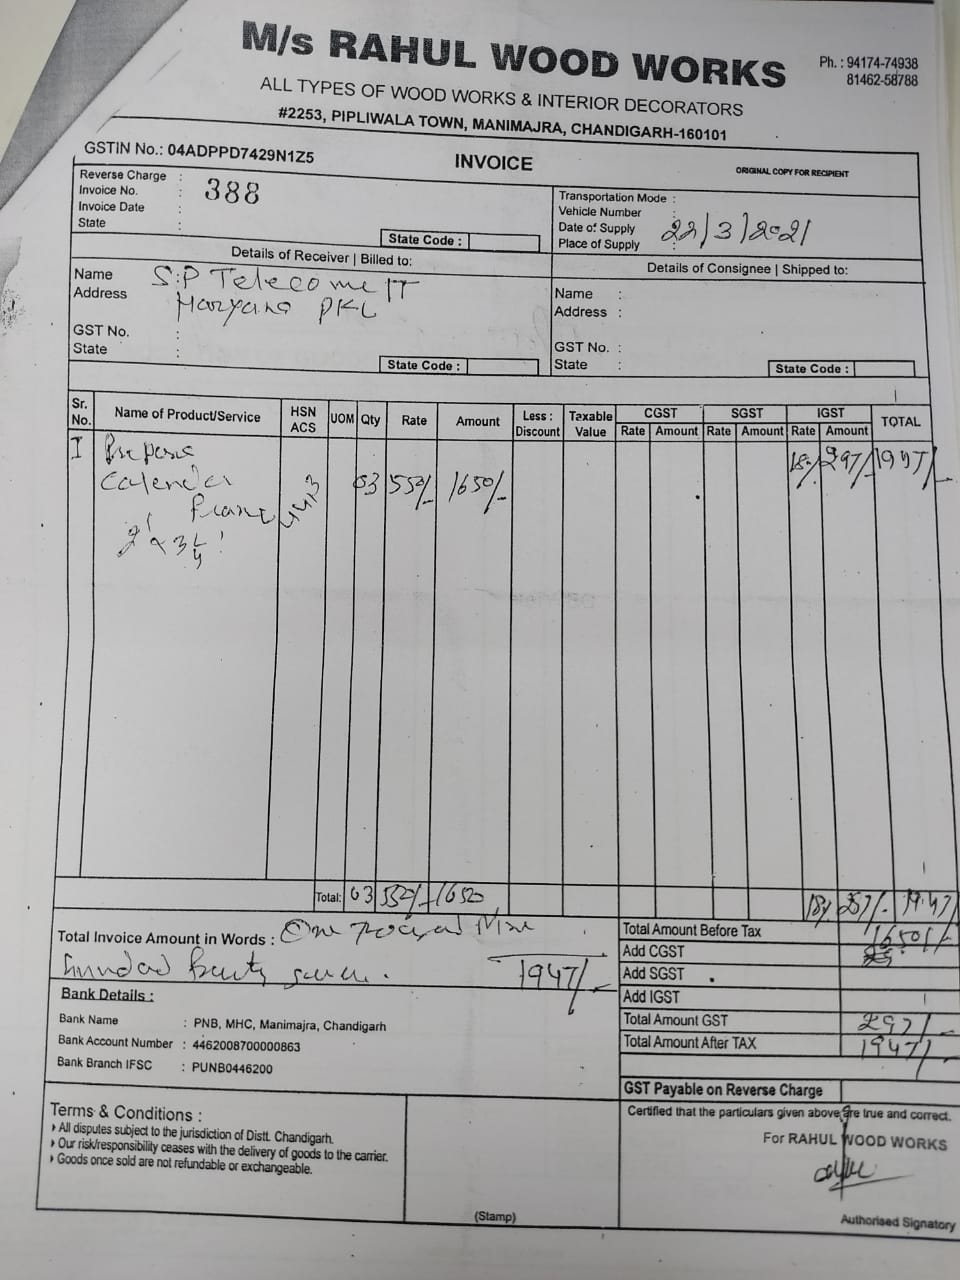 M/s RAHUL WOOD WORKS
Ph. : 94174-74938
81462-58788
ALL TYPES OF WOOD WORKS & INTERIOR DECORATORS
#2253, PIPLIWALA TOWN, MANIMAJRA, CHANDIGARH-160101
GSTIN No.: 04ADPPD7429N1Z5
INVOICE
ORIGINAL COPY FOR RECIPIENT
Reverse Charge :
Invoice No. : 388
Invoice Date :
State :
State Code :
Transportation Mode :
Vehicle Number :
Date of Supply : 22/3/2021
Place of Supply :
Details of Receiver | Billed to:
Name S.P Telecome IT
Address Haryana PKL
GST No. :
State :
State Code :
Details of Consignee | Shipped to:
Name :
Address :
GST No. :
State :
State Code :
Sr. No. Name of Product/Service HSN ACS UOM Qty Rate Amount Less : Discount Taxable Value CGST SGST IGST TOTAL
Rate Amount Rate Amount Rate Amount
1 03 550/- 1650/- 18% 297/- 1947/-
Calender
Total: 03 550/- 1650 18% 1947/
Total Invoice Amount in Words : One
1947/-
Total Amount Before Tax 1650/-
Add CGST
Add SGST
Add IGST
Total Amount GST 297/-
Total Amount After TAX 1947/-
GST Payable on Reverse Charge
Bank Details :
Bank Name : PNB, MHC, Manimajra, Chandigarh
Bank Account Number : 4462008700000863
Bank Branch IFSC : PUNB0446200
Terms & Conditions :
All disputes subject to the jurisdiction of Distt. Chandigarh.
Our risk/responsibility ceases with the delivery of goods to the carrier.
Goods once sold are not refundable or exchangeable.
(Stamp)
Certified that the particulars given above are true and correct.
For RAHUL WOOD WORKS
Authorised Signatory